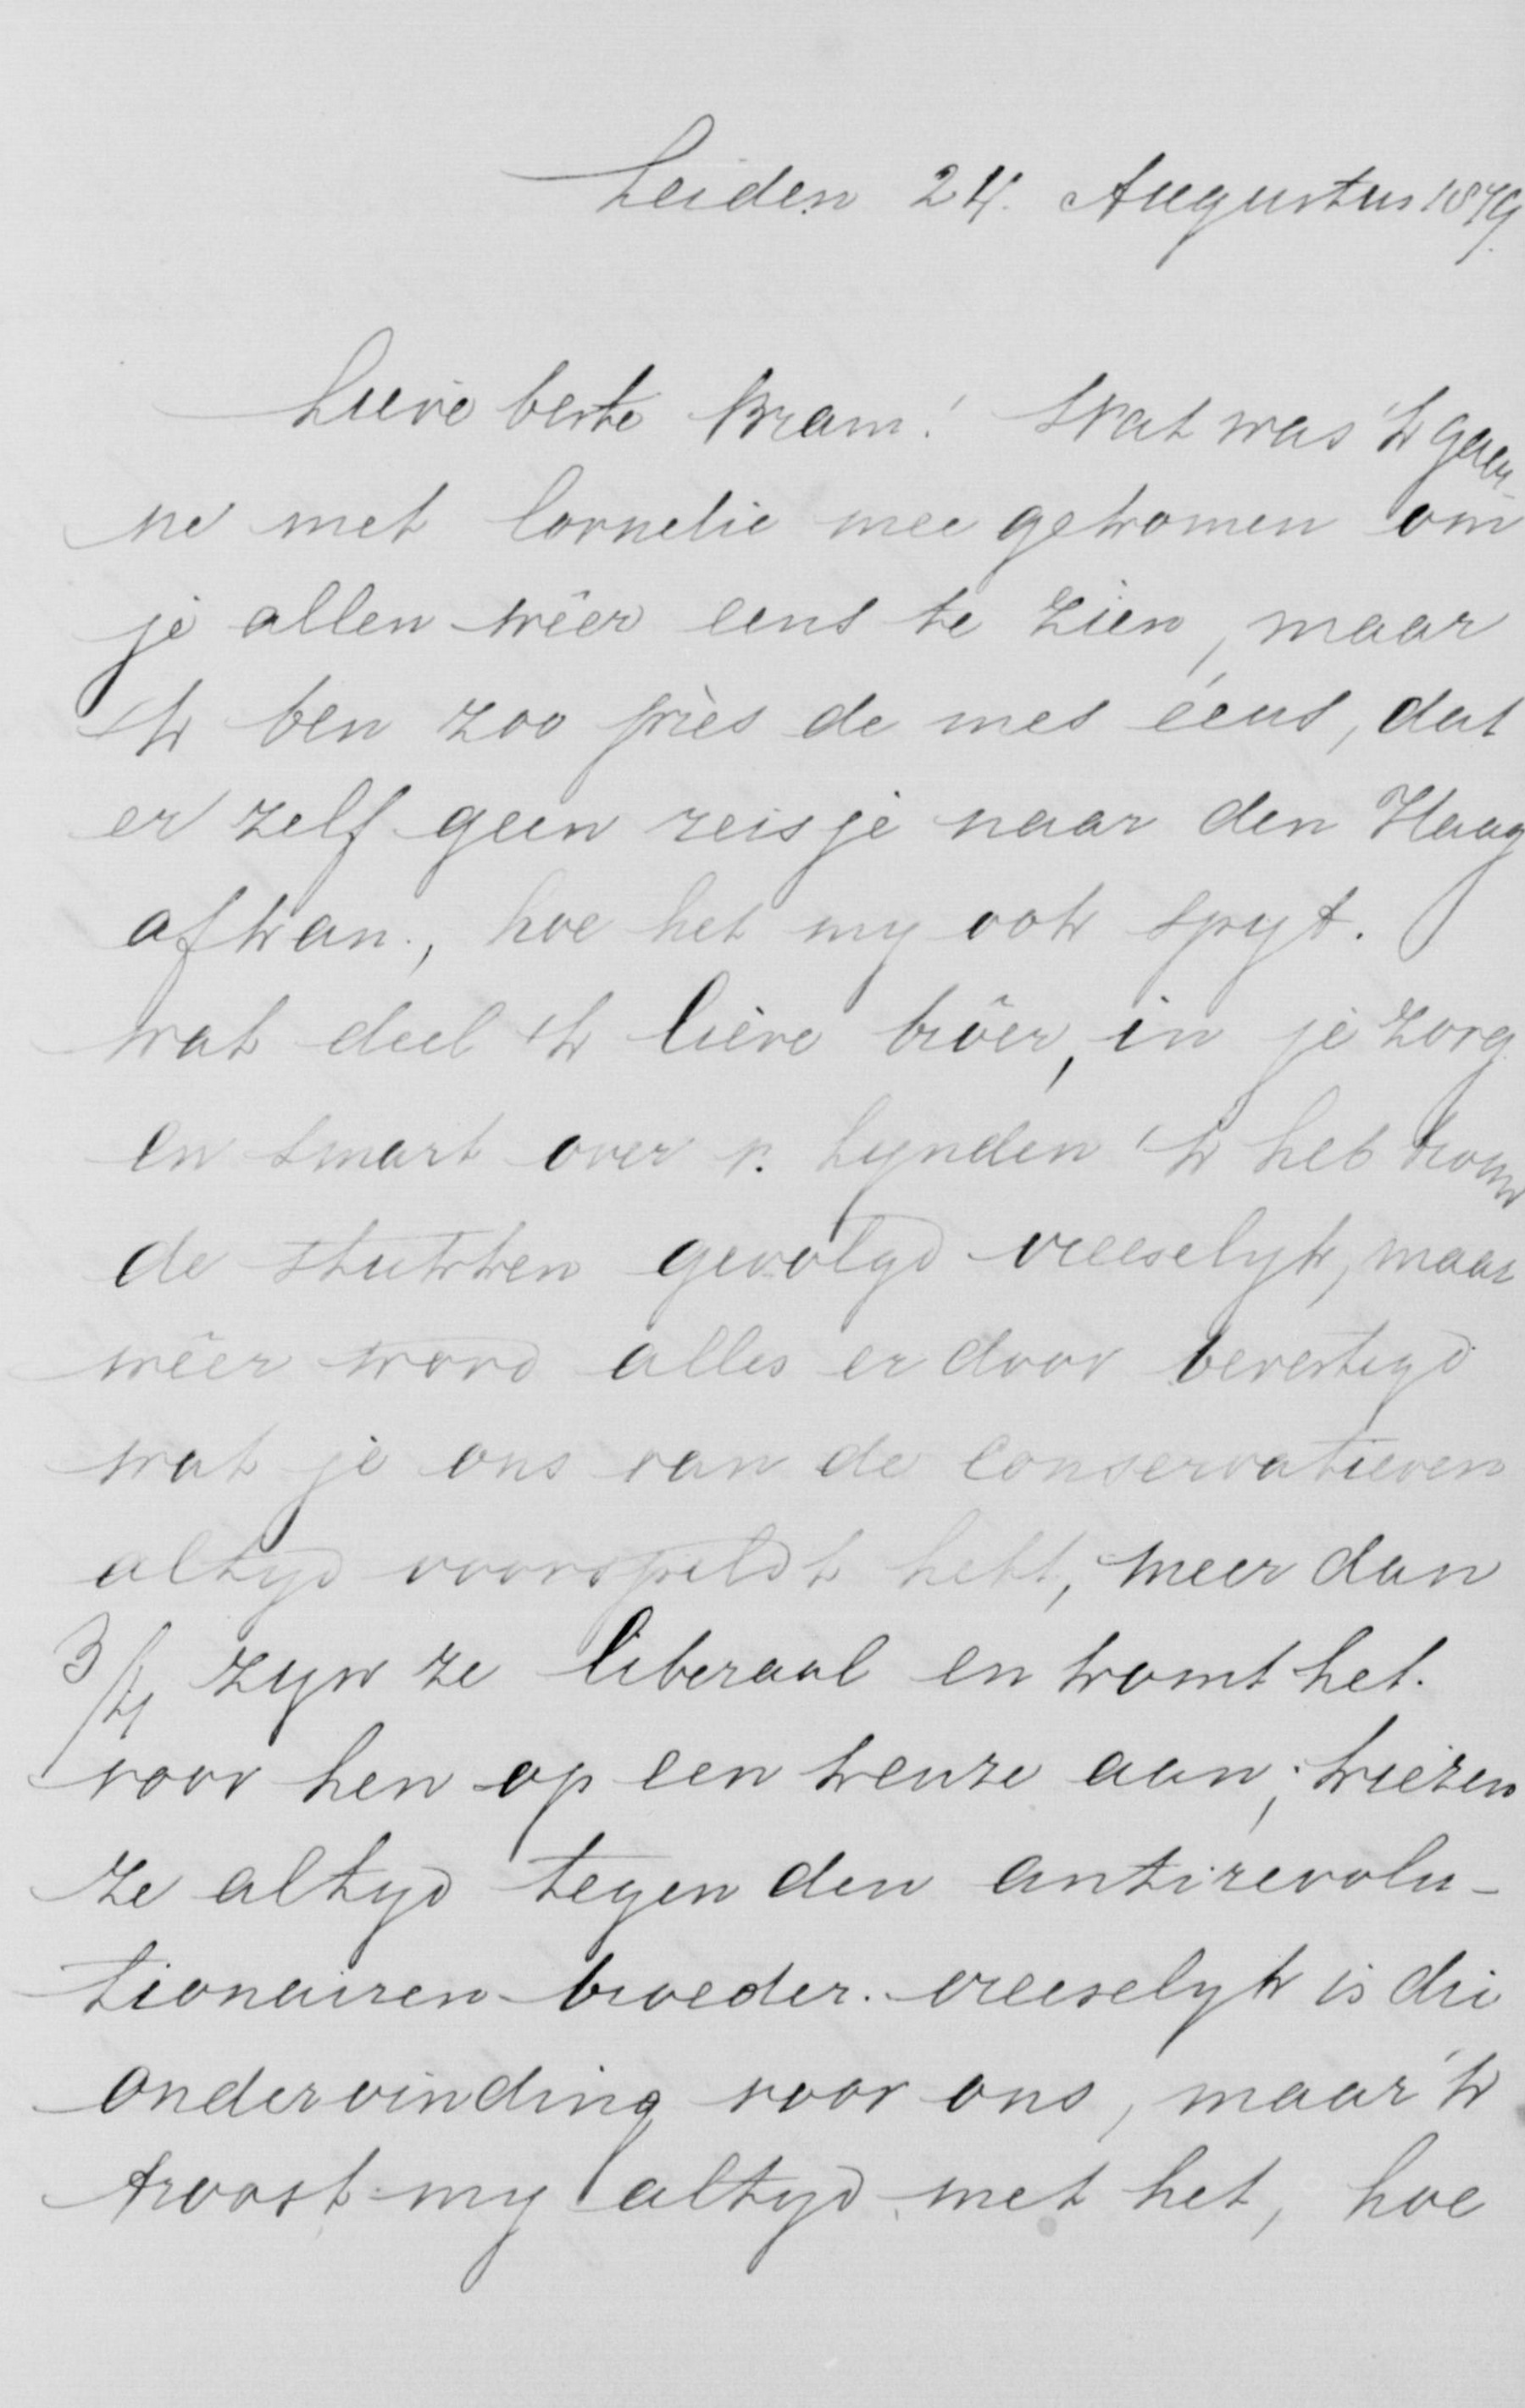 Leiden 24. Augustus 1879.
Lieve beste Bram! Wat was 'k gaar-
ne met Cornelie mee gekomen om
je allen wêer eens te zien, maar
ik ben zoo près de mes éens, dat
er zelf geen reisje naar den Haag
afkan., hoe het my ook spyt.
wat deel ik lieve brôer, in je zorg
en smart over v. Lynden 'k heb trouw
de stukken gevolgd vreeselyk, maar
wêer word alles er door bevestigd
wat je ons van de Conservatieven
altyd voorspeldt hebt, meer dan
3/4 zyn ze liberaal en komt het.
voor hen op een keuze aan; kiezen
ze altyd tegen den antirevolu-
tionairen broeder. vreeselyk is die
ondervinding voor ons, maar 'k
troost my altyd met het, hoe